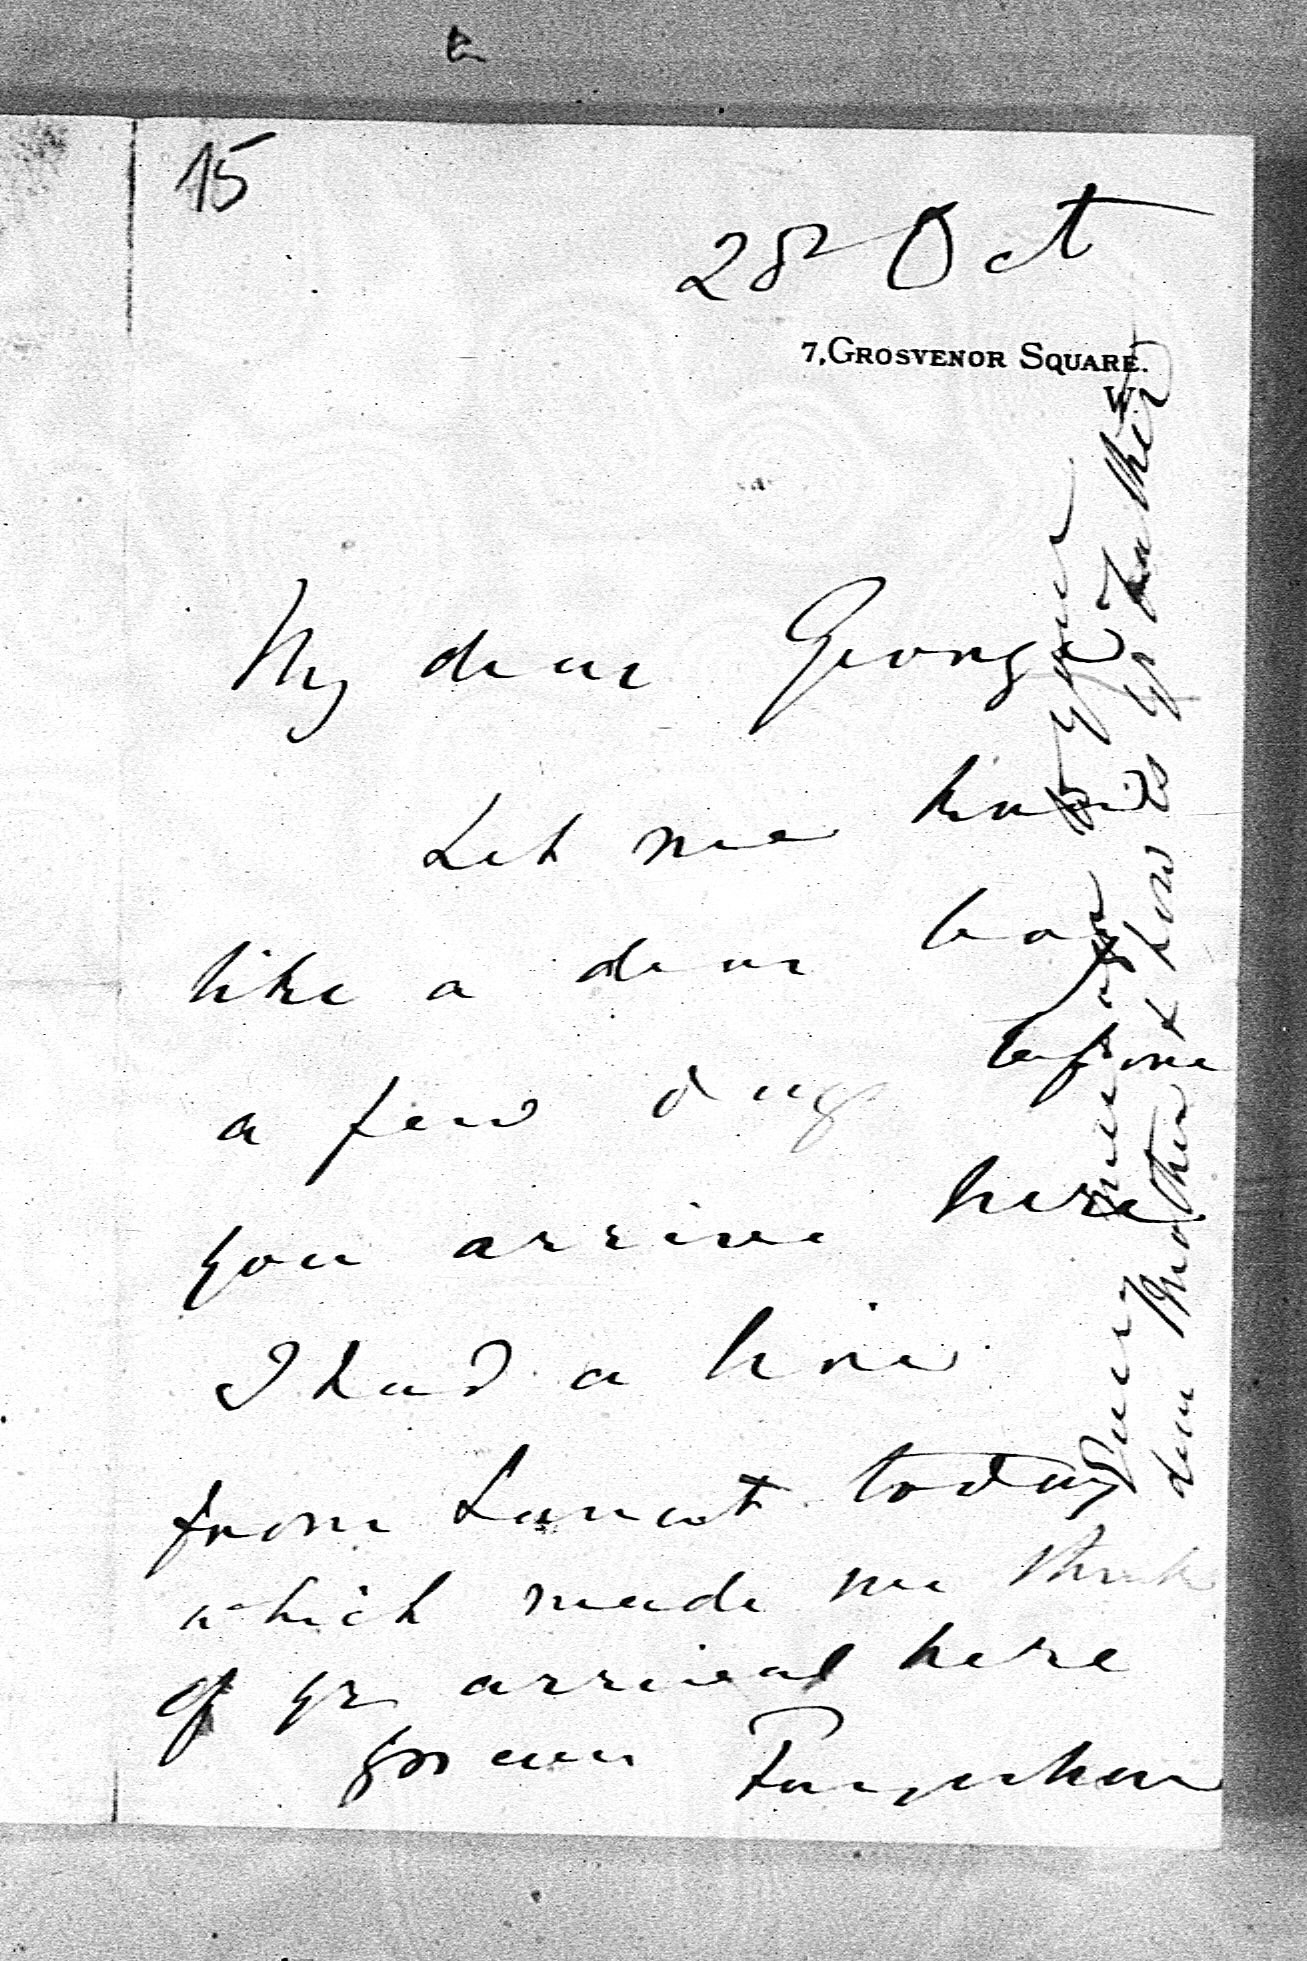 15
28 Oct
7, GROSVENOR SQUARE.
W.
My dear George
Let me know
like a dear boy
a few days before
you arrive here
I had a line
from Lanut today
which made me think
of yr arrival here
yrs ever Farquhar
dear Mother & how is yr Father